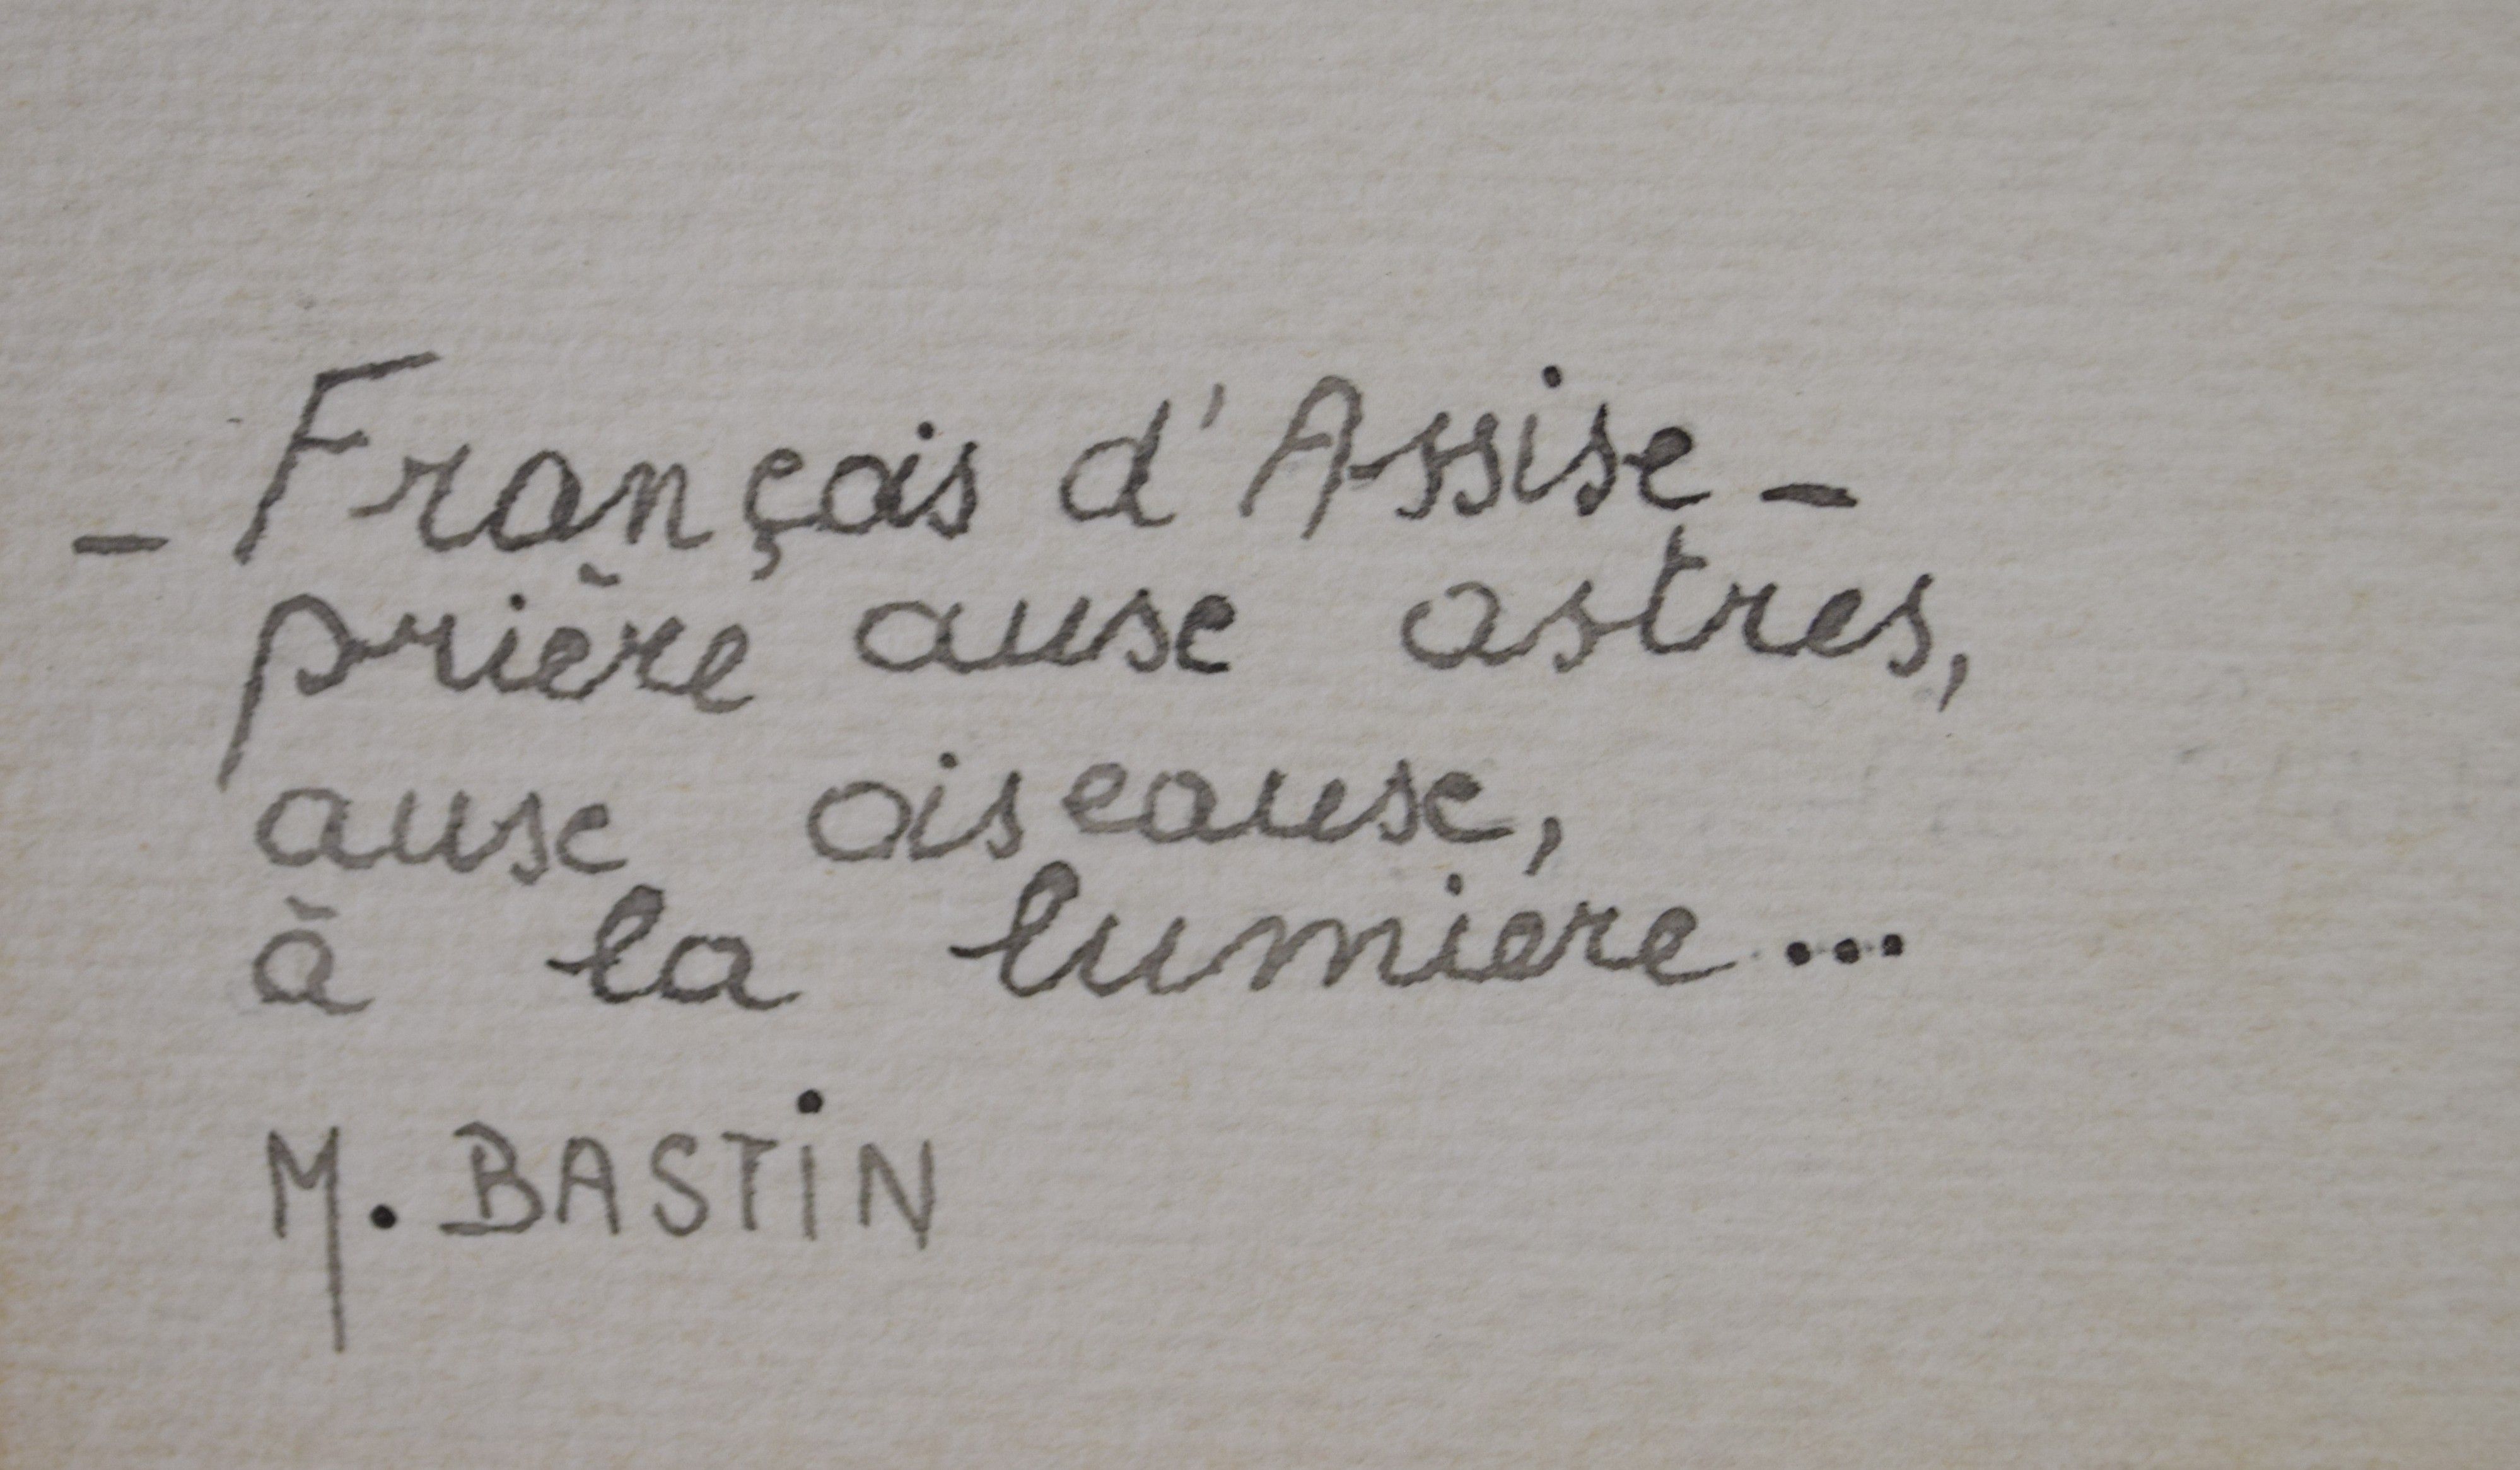 - François d'Assise -
prière aux astres,
aux oiseaux,
à la lumière...
M. BASTIN